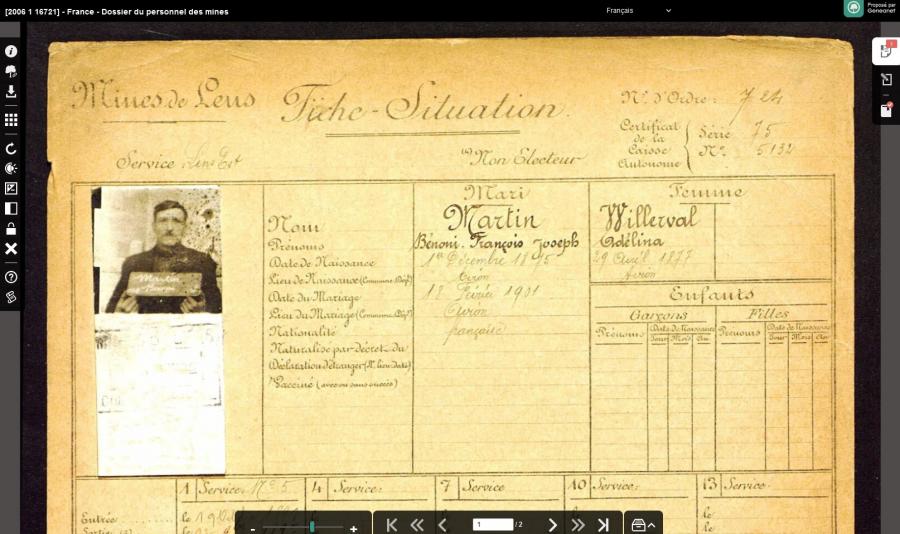 [2006 1 16721] - France - Dossier du personnel des mines
Français
Proposé par
Geneanet
Mines de Lens
Fiche-Situation.
N° d'Ordre: 724
Certificat
de la
Caisse
Autonome
Série 75
N° 5132
Service
Non Electeur
Mari
Femme
Nom
Martin
Willerval
Prénoms
Bénoni. François Joseph
Adélina
Date de Naissance
1er Décembre 1875
29 Avril 1877
Lieu de Naissance (Commune, Dépt)
Date du Mariage
18 Février 1901
Lieu du Mariage (Commune, Dépt)
Nationalité
française
Naturalisé par décret du
Déclaration d'étranger (N°, lieu, date)
Vacciné (avec ou sans succès)
Martin
Enfants
Garçons
Filles
Prénoms
Date de Naissance
Jour
Mois
An
Prénoms
Date de Naissance
Jour
Mois
An
1 Service: N° 5
4 Service:
7 Service
10 Service:
13 Service:
Entrée
le
le
le
- +
1 / 2